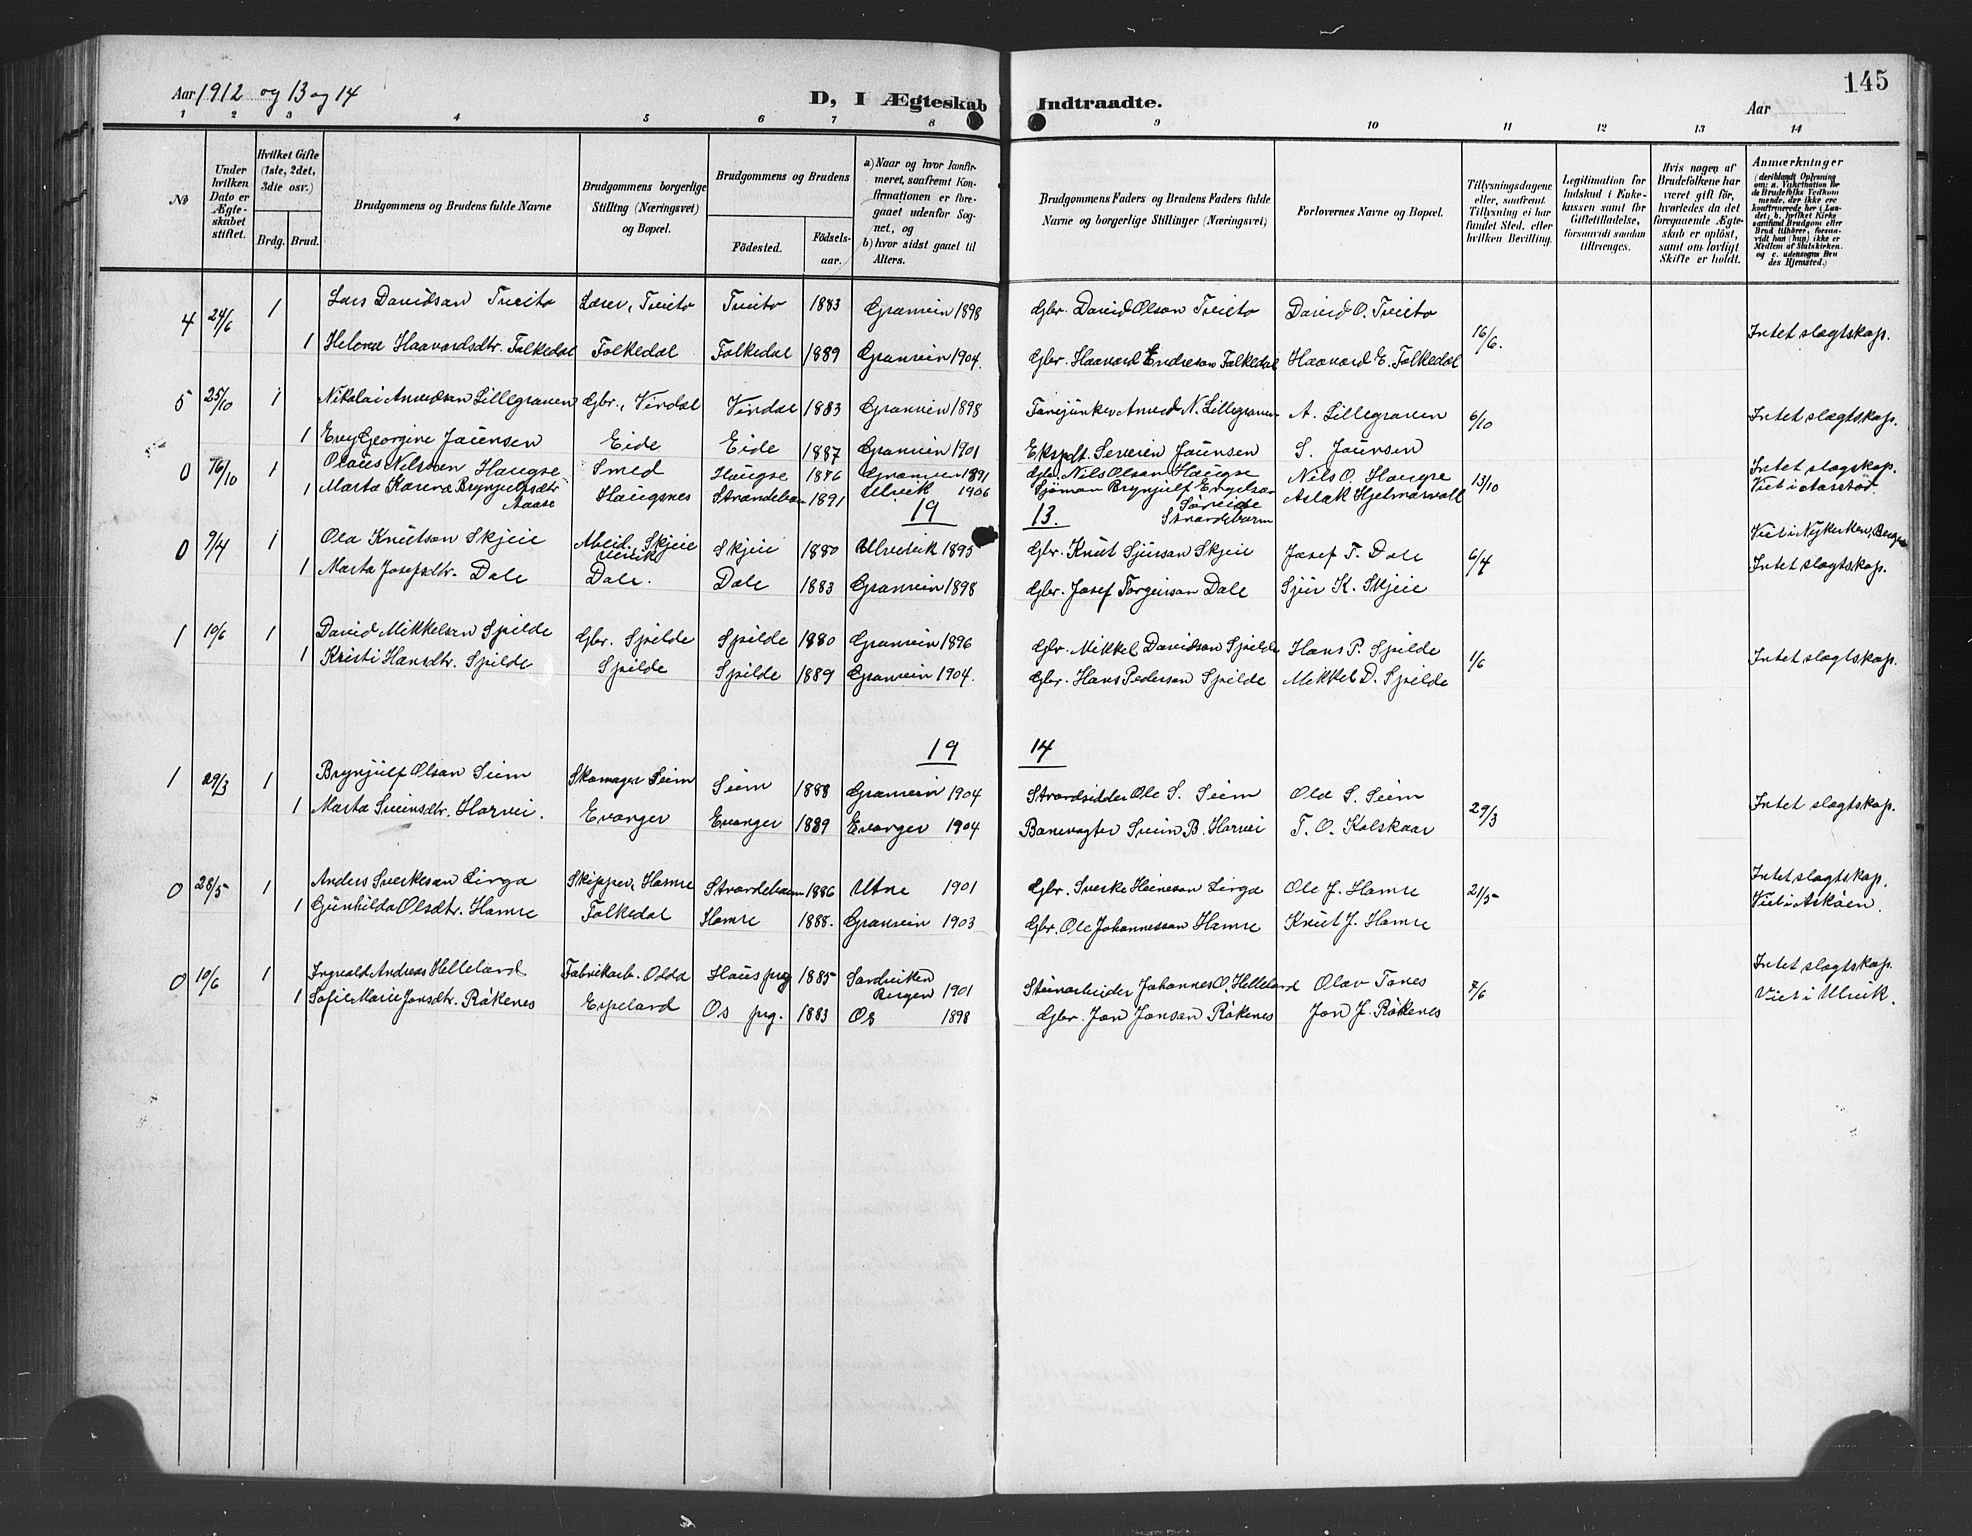 145
Aar 1912 og 13 og 14
D, I Ægteskab Indtraadte.
Aar
1 2 3 4 5 6 7 8 9 10 11 12 13 14
No
Under hvilken Dato er Ægteskabet stiftet.
Hvilket Gifte (1ste, 2det, 3die osv.)
Brdg. Brud.
Brudgommens og Brudens fulde Navne
Brudgommens borgerlige Stilling (Næringsvei) og Bopæl.
Brudgommens og Brudens
Födested. Födselsaar.
a) Naar og hvor konfirmeret, saafremt Konfirmationen er foregaaet udenfor Sognet, og
b) hvor sidst gaaet til Alters.
Brudgommens Faders og Brudens Faders fulde Navne og borgerlige Stillinger (Næringsvei)
Forlovernes Navne og Bopæl.
Tillysningsdagene eller, saafremt Tillysning ei har fundet Sted. efter hvilken Bevilling.
Legitimation for Indskud i Enkekassen samt for Giftetilladelse, forsaavidt saadan tiltrænges.
Hvis nogen af Brudefolkene har været gift för, hvorledes da det foregaaende Ægteskab er oplöst, samt om lovligt Skifte er holdt.
Anmærkninger (deriblandt Oplysning om: a. Vakcination for de Brudefolks Vedkommende, der ikke ere konfirmerede her i Landet; b. hvilket Kirkesamfund Brudgom eller Brud tilhörer, forsaavidt han (hun) ikke er Medlem af Statskirken. og c. udensogns Brudes Hjemsted.)
4 24/6 1 Lars Davidsen Tveito Lærer, Tveito Tveito 1883 Granvin 1898 Gbr. David Olson Tveito David O. Tveito 16/6. Intet slægtskap.
1 Helena Haavardsdtr. Folkedal Folkedal Folkedal 1889 Granvin 1904. Gbr. Haavard Endreson Folkedal Haavard E. Folkedal
5 25/10 1 Nikolai Anvedsen Lillegraven Gbr., Vindal Vindal 1883 Granvin 1898 Fanejunker Anved N. Lillegraven A. Lillegraven 6/10 Intet slægtskap.
1 Evy Georgine Jaunsen Eide Eide 1887 Granvin 1901 Ekspdt. Severin Jaunsen S. Jaunsen
0 16/10 1 Olaus Nilsen Haugse Smed Haugse 1876 Granvin 1891 Gbr. Nils Olsen Haugse Nils O. Haugse 13/10 Intet slægtskap.
1 Marta Karena Brynjulfsdtr Aaase Haugsnes Strandebarm 1891 Ulvik 1906 Sjöman Brynjulf Engelsen Aslak Hjelmævoll Viet i Aarstad.
Strandebarm
19 13.
0 9/4 1 Ola Knutson Skjeie Arbeid. Skjeie Ulvik Skjeie 1880 Ulvik 1895 Gbr. Knut Sjurson Skjeie Josef T. Dale 6/4 Viet i Nykirken, Bergen
1 Marta Josefsdtr. Dale Dale. Dale 1883 Granvin 1898 Gbr. Josef Torgeirson Dale Sjur K. Skjeie Intet slægtskap.
1 10/6 1 David Mikkelsen Spilde Gbr. Spilde Spilde 1880 Granvin 1896 Gbr. Mikkel Davidson Spilde Hans P. Spilde 1/6 Intet slægtskap.
1 Kristi Hansdtr. Spilde Spilde Spilde 1889 Granvin 1904. Gbr. Hans Pederson Spilde Mikkel D. Spilde
19 14
1 29/3 1 Brynjulf Olsen Seim Skomager Seim Seim 1888 Granvin 1904 Strandsidder Ole S. Seim Ole S. Seim 29/3 Intet slægtskap.
1 Marta Sveinsdtr. Horvei. Evanger Evanger 1889 Evanger 1904 Banevogter Svein B. Horvei T. O. Kolskaar
0 28/5 1 Anders Sverkeson Lirga Skipper, Hamre Strandebarm 1886 Utne 1901 Gbr. Sverke Heineson Lirga Ole J. Hamre 21/5 Intet slægtskap.
1 Gunhilda Olsdtr. Hamre Folkedal Hamre 1888. Granvin 1903 Gbr. Ole Johannesson Hamre Knut J. Hamre Viet i Askøen.
0 10/6 1 Ingvald Andreas Helleland Fabrikarb. Odda Haus prg 1885 Sandviken Bergen 1901 Stenarbeider Johannes O. Helleland Olav Tones 7/6 Intet slægtskap.
1 Sofie Marie Jonsdtr. Røkenes Espeland Os prg. 1883 Os 1898 Gbr. Jon Jonsen Røkenes Jon J. Røkenes Viet i Ulvik.